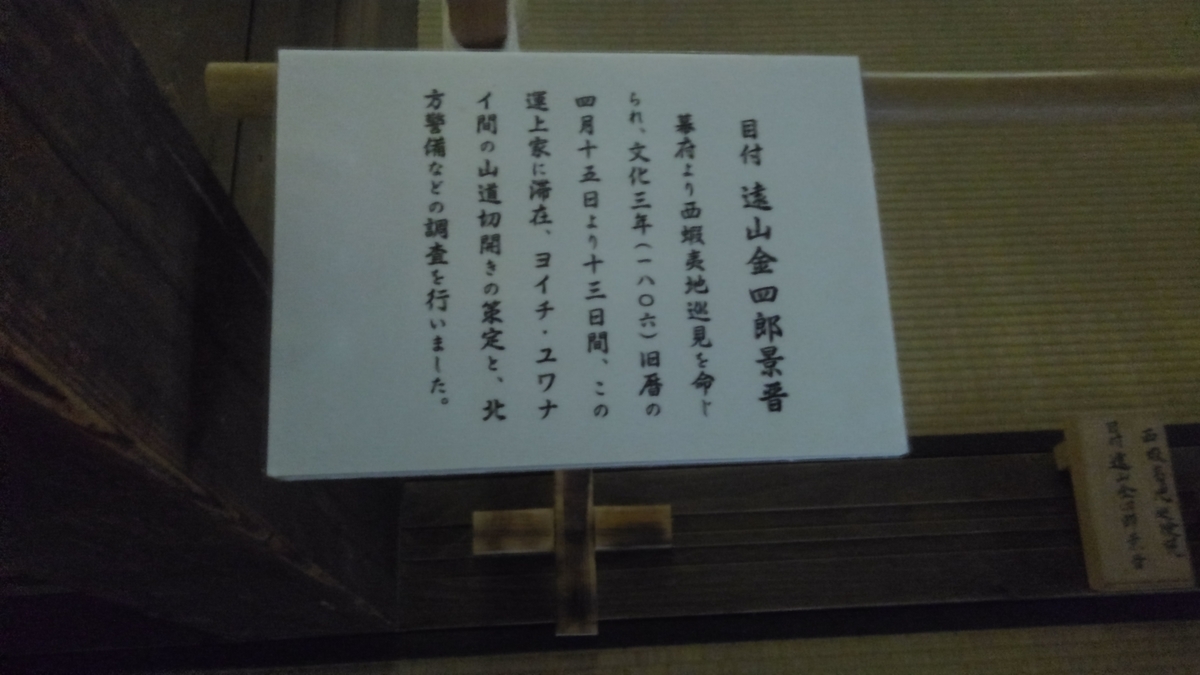 目付 遠山金四郎景晋
幕府より西蝦夷地巡見を命じ
られ、文化三年(一八〇六)旧暦の
四月十五日より十三日間、この
運上家に滞在、ヨイチ・ユワナ
イ間の山道切開きの策定と、北
方警備などの調査を行いました。
西蝦夷地
目付遠山金四郎景晋